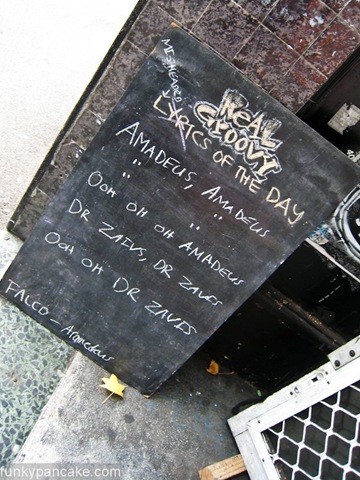 MISHEARD
REAL
GROOVY
LYRICS OF THE DAY
AMADEUS, AMADEUS
" "
OOH OH OH AMADEUS
DR ZAIUS, DR ZAIUS
OOH OH DR ZAUIS
FALCO - Armedeus
funkypancake.com